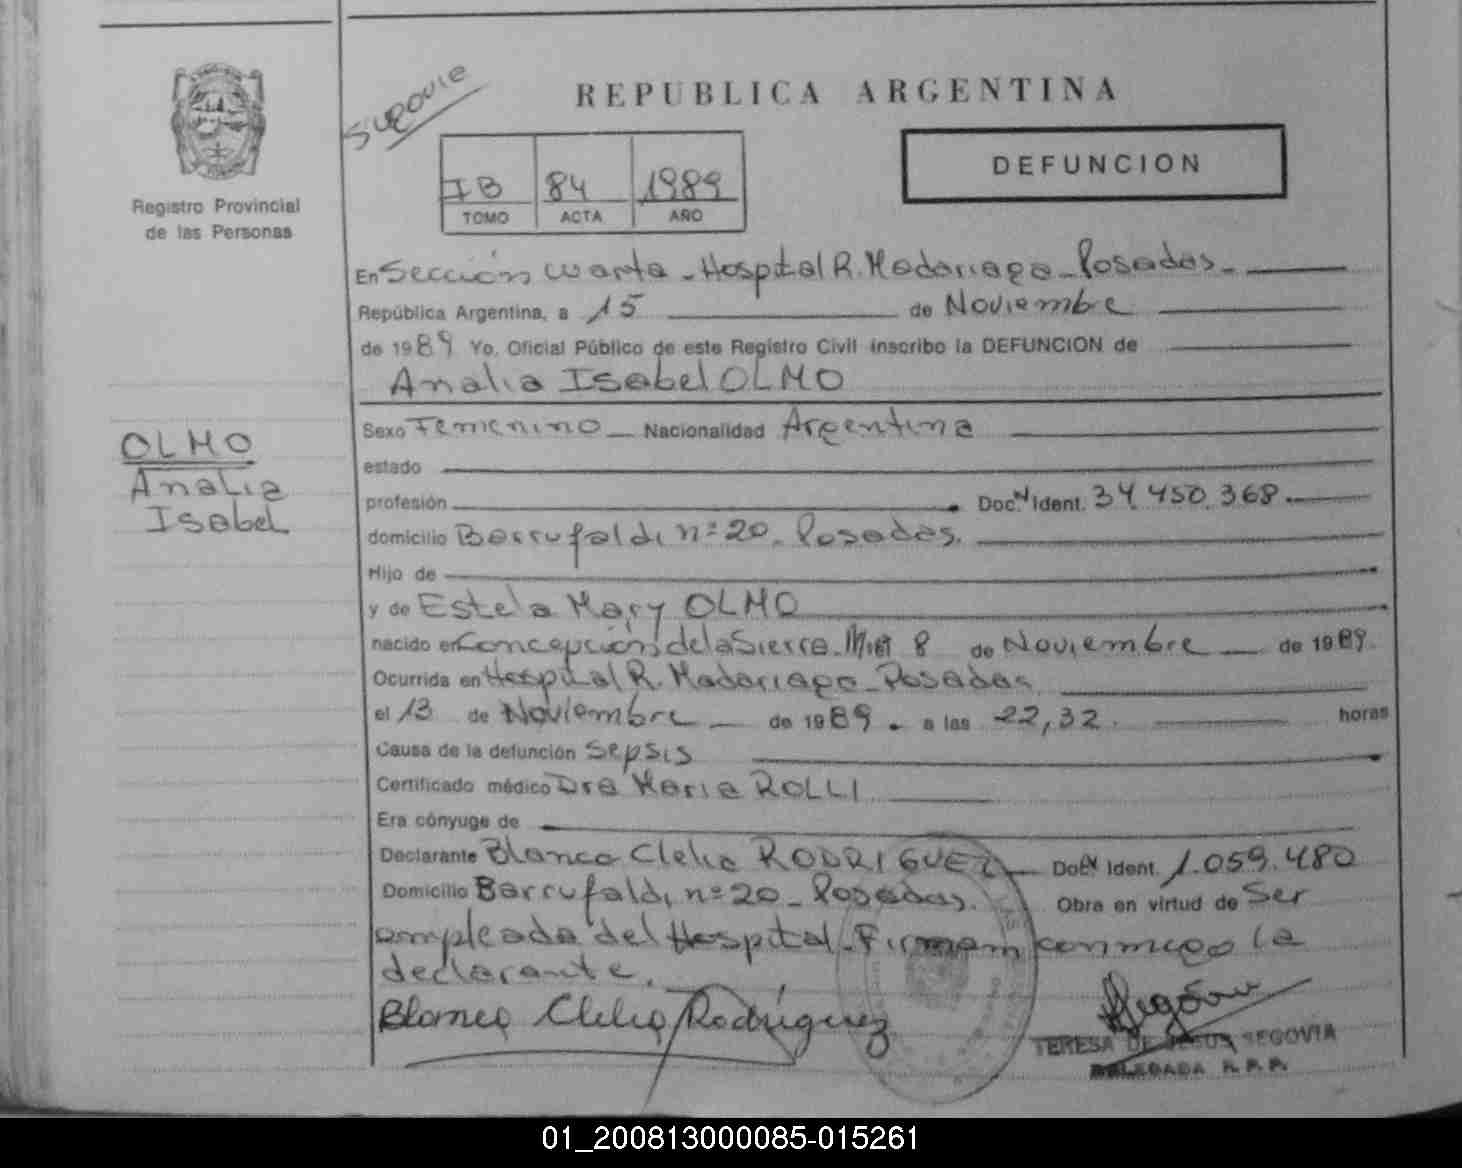 Segovia
REPUBLICA ARGENTINA
IB 84 1989
TOMO ACTA AÑO
DEFUNCION
Registro Provincial
de las Personas
En Sección cuarta - Hospital R. Madariaga - Posadas -
República Argentina, a 15 de Noviembre
de 1989 Yo, Oficial Público de este Registro Civil inscribo la DEFUNCION de
Analia Isabel OLMO
OLMO
Analia
Isabel
Sexo Femenino - Nacionalidad Argentina
estado
profesión Doc. N Ident. 34.450.368.
domicilio Barrufaldi nº 20 - Posadas.
Hijo de
y de Estela Mary OLMO
nacido en Concepción de la Sierra - Mis 8 de Noviembre de 1989.
Ocurrida en Hospital R. Madariaga - Posadas
el 13 de Noviembre - de 1989. a las 22,32. horas
Causa de la defunción Sepsis
Certificado médico Dra Maria ROLLI
Era cónyuge de
Declarante Blanca Clelia RODRIGUEZ Doc. N Ident. 1.059.480
Domicilio Barrufaldi nº 20 - Posadas. Obra en virtud de Ser
empleada del Hospital - Firman conmigo la
declarante.
Blanca Clelia Rodriguez
Segovia
TERESA DE JESUS SEGOVIA
DELEGADA R. P. P.
01_200813000085-015261